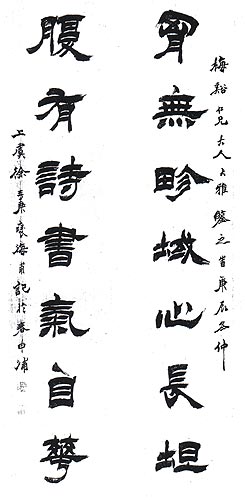 梅谿仁兄大人大雅鑒之 時庚辰冬仲
胷無畛域心長坦
腹有詩書氣自華
上虞徐三庚褎海甫記於春申浦